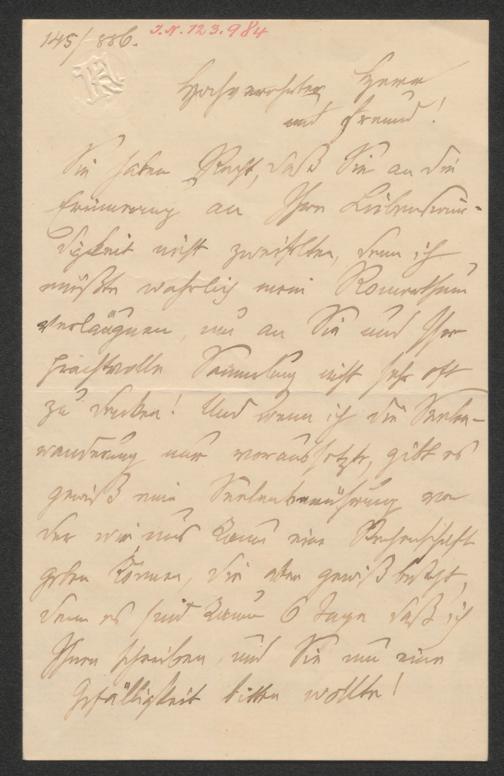 145/886. I.N. 123.984
Hochverehrter Herr
und Freund!
Sie haben Recht, daß Sie an die
Erinnerung an Ihre Liebenswür-
digkeit nicht zweifelten, denn ich
müßte wahrlich mein
verläugnen, um an Sie und Ihre
prachtvolle Sammlung nicht sehr oft
zu denken! Und wenn ich die Seelen-
wanderung nur voraussetzte, gibt es
gewiß eine Seelenberührung von
der wir uns kaum eine Rechenschaft
geben können, die aber gewiß besteht,
denn es sind kaum 6 Tage daß ich
Ihnen schreiben, und Sie um eine
Gefälligkeit bitten wollte!